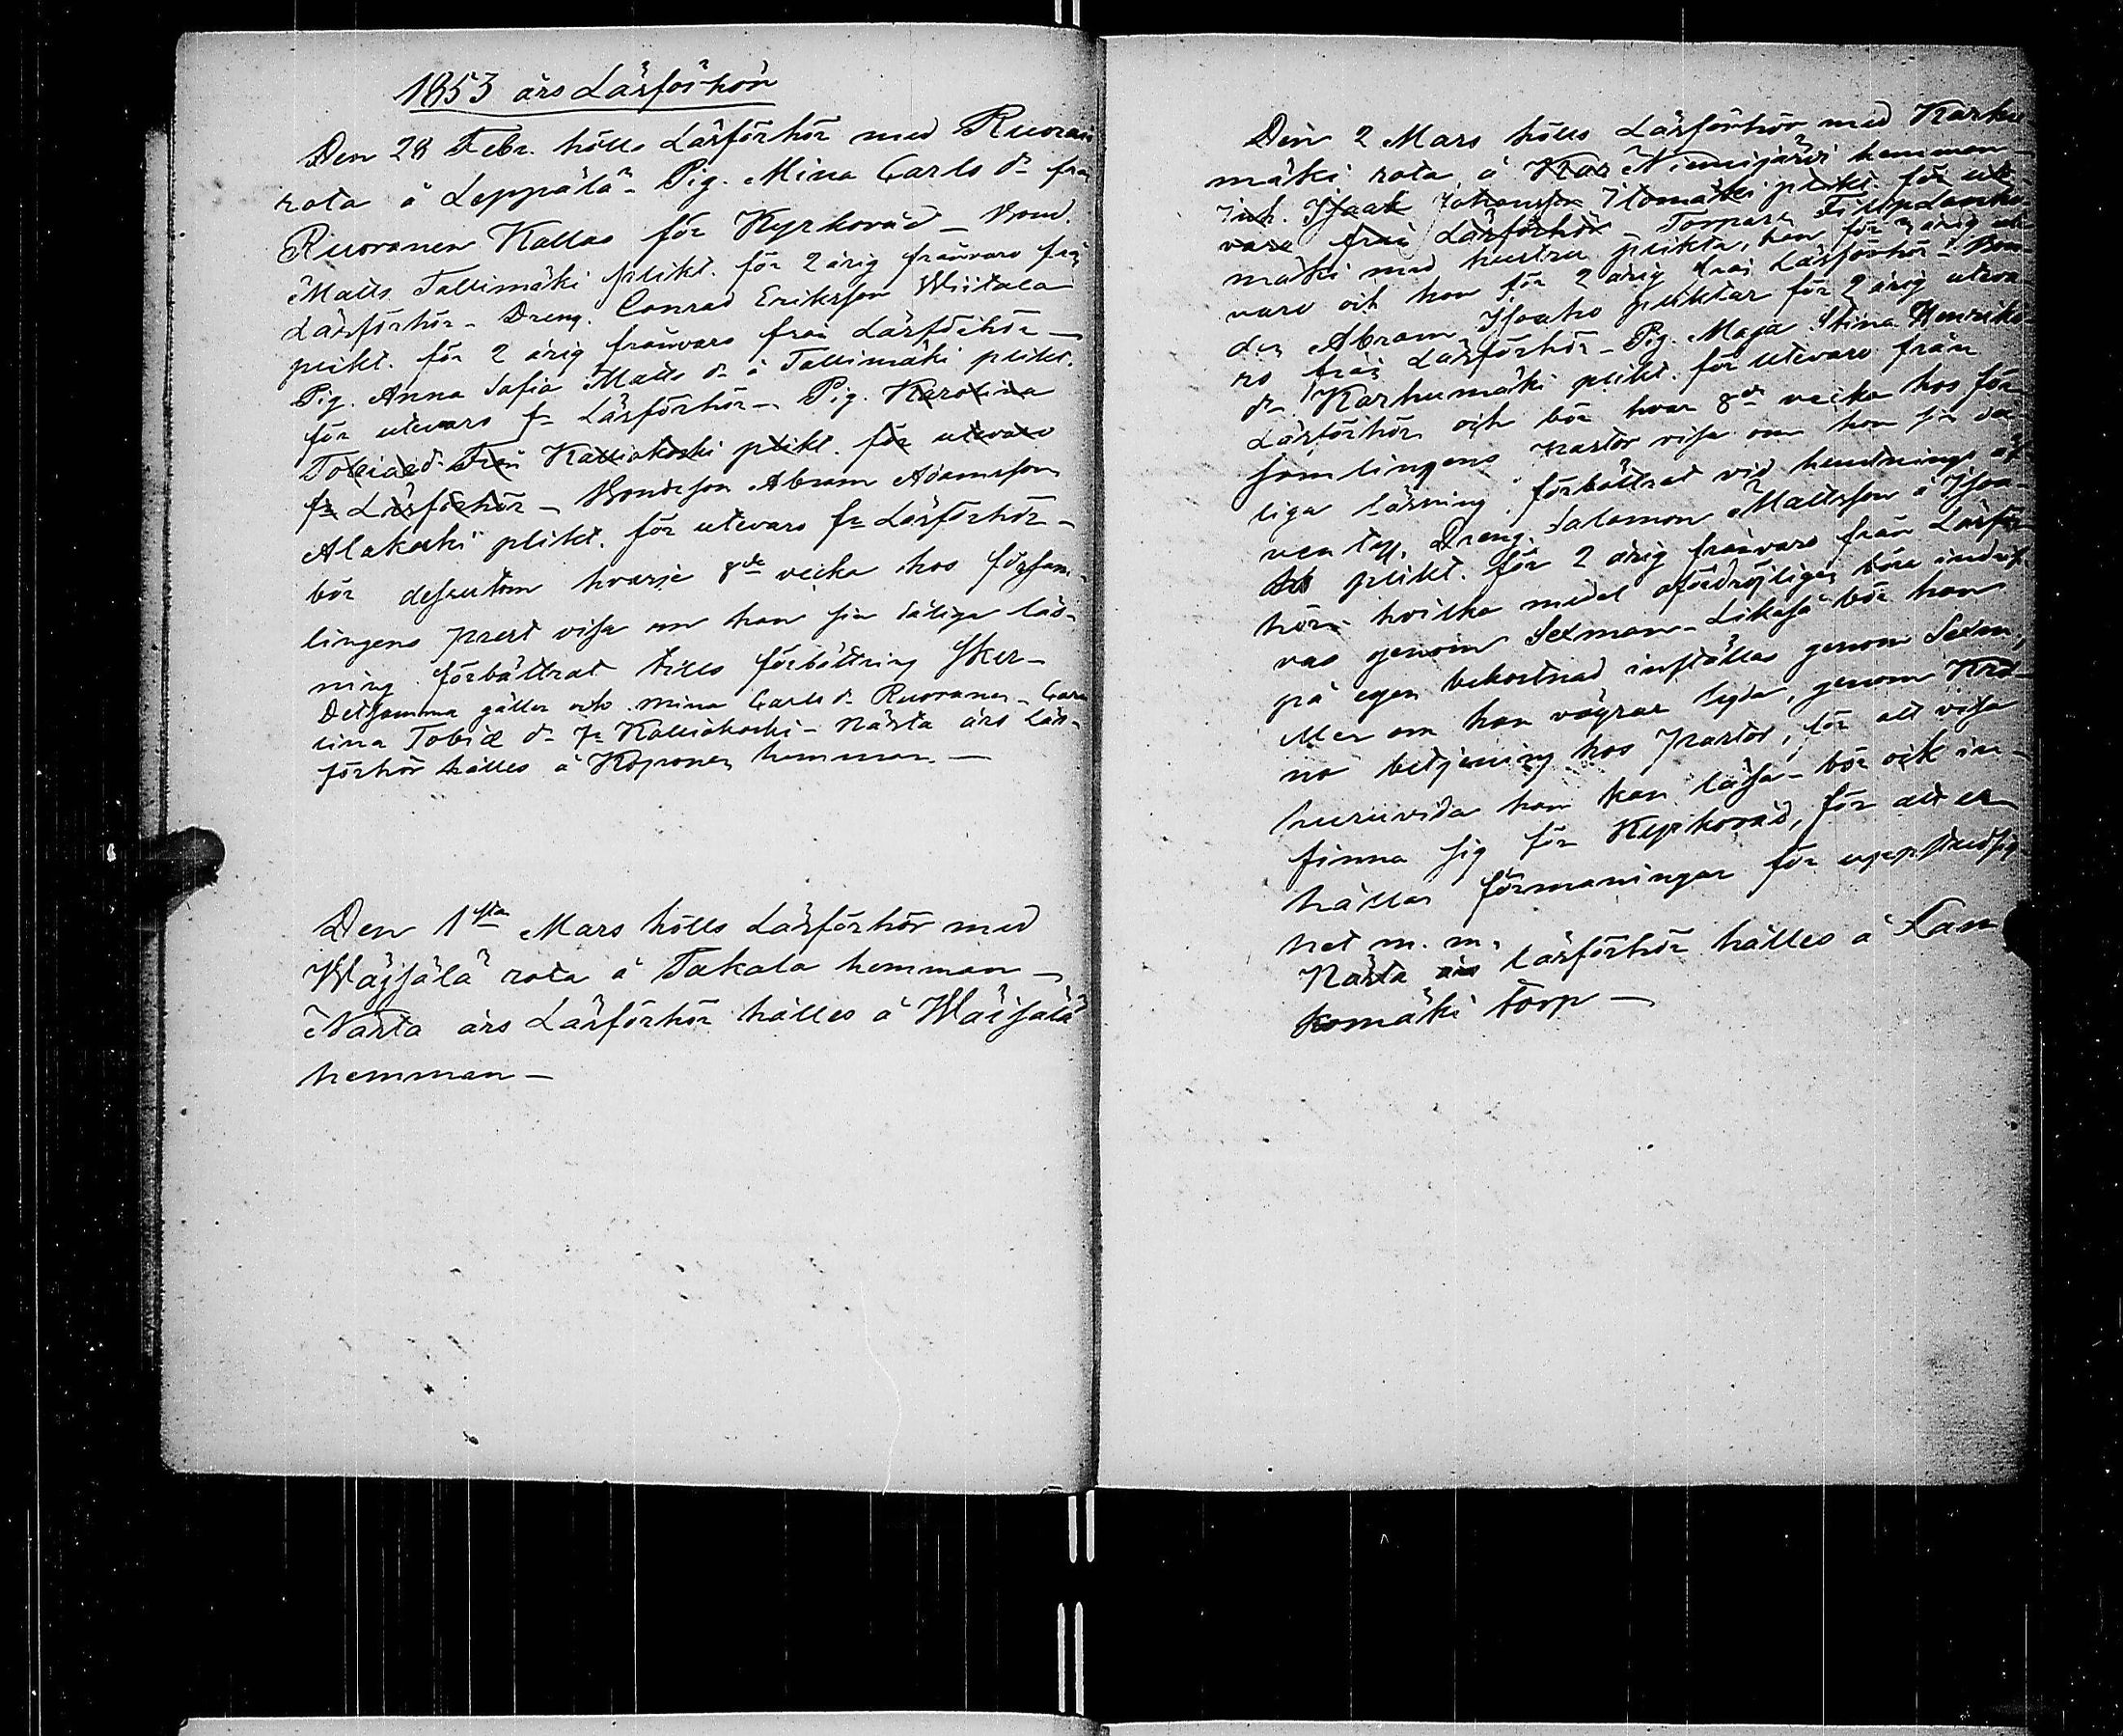 1853 års Läsförhör
Den 28 Febr. hölls Läsförhör med Ruoranen
rota å Leppälä - Pig. Mina Carls dr från
Ruoranen Kallas för Kyrkoråd - Bond.
Matts Tallimäki plikt. för 2 årig frånvaro från
Läsförhör - Dreng. Conrad Eriksson Wiitala
plikt. för 2 årig frånvaro från Läsförhör -
Pig. Anna Sofia Matts dr å Tallimäki plikt.
för utevaro fr Läsförhör - Pig. Karolina
Tobiaed. från Kalliokoski plikt. för utevaro
fr Läsförhör - Bondeson Abram Adamsson
Alakoski plikt. för utevaro fr Läsförhör -
bör dessutom hvarje 8de vecka hos försam-
lingens prest visa om han sin dåliga läs-
ning förbättrat tills förbättring sker -
Detsamma gäller ock Mina Carls dr Ruoranen - Caro
lina Tobiæ dr fr Kalliokoski - Nästa års Läs-
förhör hålles å Koponen hemman -
Den 1sta Mars hölls Läsförhör med
Wäisälä rota å Takala hemman -
Nästa års Läsförhör hålles å Wäisälä
hemman -
Den 2 Mars hölls Läsförhör med Karhu
mäki rota å Kar Niemijärvi hemman
Inh. Isaak Johansson Ilomäki plikt. för ute
varo från Läsförhör - Torpare
mäki med hustru plikta, han för 2 årig ute
varo och hon för 2 årig från Läsförhör - Bon
den Abram Isaaks pliktar för 2 årig uteva
ro från Läsförhör - Pig. Maja Stina Henriks
dr Karhumäki plikt. för utevaro från
Läsförhör och bör hvar 8de vecka hos för
samlingens pastor visa om hon sin då-
liga läsning förbättrat vid hemtnings äf
ventyr. Dreng. Salomon Mattsson å
plikt. för 2 årig frånvaro från Läsför
hör hvilka medel ofördröjligen böra indrif
vas genom Sexman - Likaså bör han
på egen bekostnad inställas genom Sexm,
eller om han vägrar lyda, genom Kro-
no betjening hos pastor, för att visa
huruvida han kan läsa - bör ock in-
finna sig för Kyrkoråd, för att er-
hålla förmaningar för uppstudsig
het m. m.
Nästa års läsförhör hålles å Lam
komäki torp -